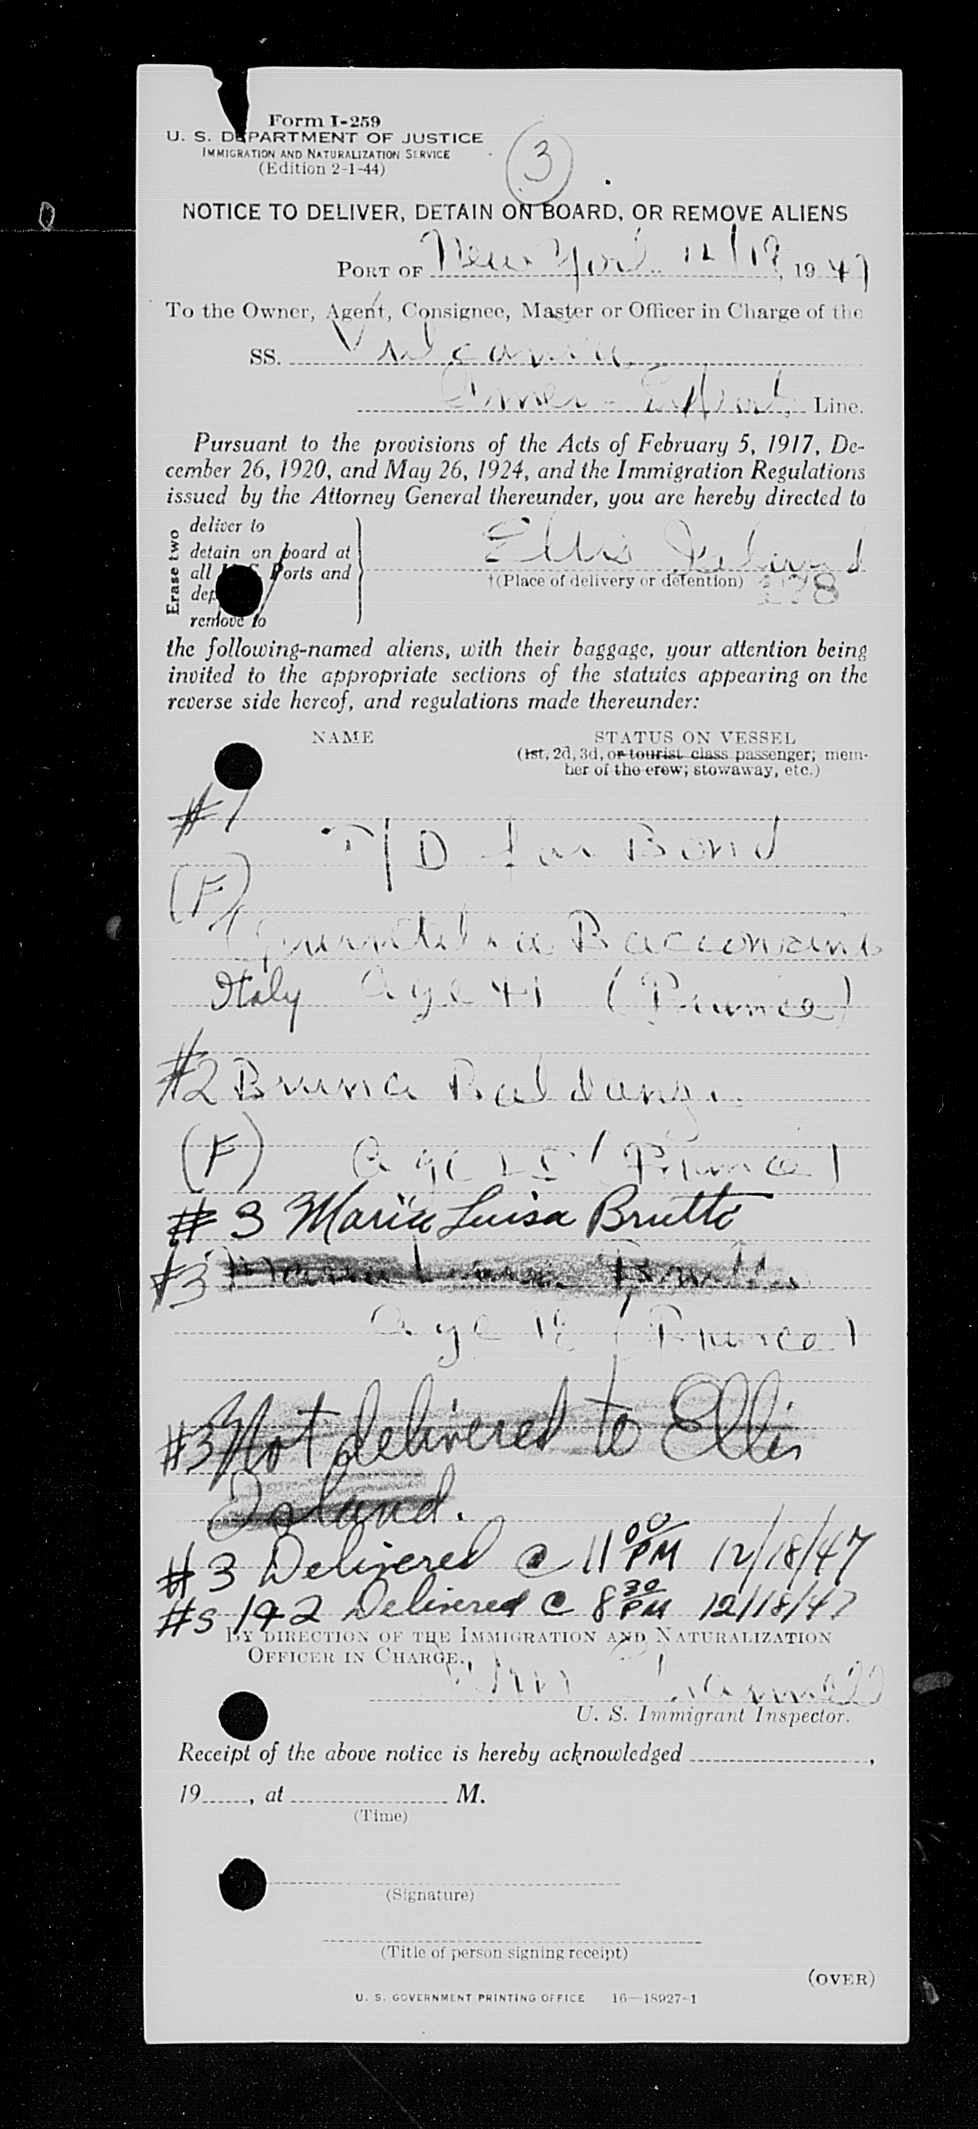 Form I-259
U. S. DEPARTMENT OF JUSTICE
IMMIGRATION AND NATURALIZATION SERVICE
(Edition 2-1-44)
3
NOTICE TO DELIVER, DETAIN ON BOARD, OR REMOVE ALIENS
PORT OF New York 12/18, 1947
To the Owner, Agent, Consignee, Master or Officer in Charge of the
SS. Vulcania
Amer. Export Line.
Pursuant to the provisions of the Acts of February 5, 1917, De-
cember 26, 1920, and May 26, 1924, and the Immigration Regulations
issued by the Attorney General thereunder, you are hereby directed to
Erase two
deliver to
detain on board at
all U. S. Ports and
remove to
Ellis Island
†(Place of delivery or detention) 278
the following-named aliens, with their baggage, your attention being
invited to the appropriate sections of the statutes appearing on the
reverse side hereof, and regulations made thereunder:
NAME
STATUS ON VESSEL
(1st, 2d, 3d, or tourist class passenger; mem-
ber of the crew; stowaway, etc.)
#1
T/D for Bond
(F)
Italy Age 41
#2 Bruna
(F) Age
#3 Maria Luisa Brutto
#3 Maria Luisa Brutto
Age 18
#3 Not delivered to Ellis
Island.
#3 Delivered @ 11 00 PM 12/18/47
#s 1 & 2 Delivered @ 8 30 PM 12/18/47
BY DIRECTION OF THE IMMIGRATION AND NATURALIZATION
OFFICER IN CHARGE.
U. S. Immigrant Inspector.
Receipt of the above notice is hereby acknowledged ,
19 , at M.
(Time)
(Signature)
(Title of person signing receipt)
(OVER)
U. S. GOVERNMENT PRINTING OFFICE 16—18927-1